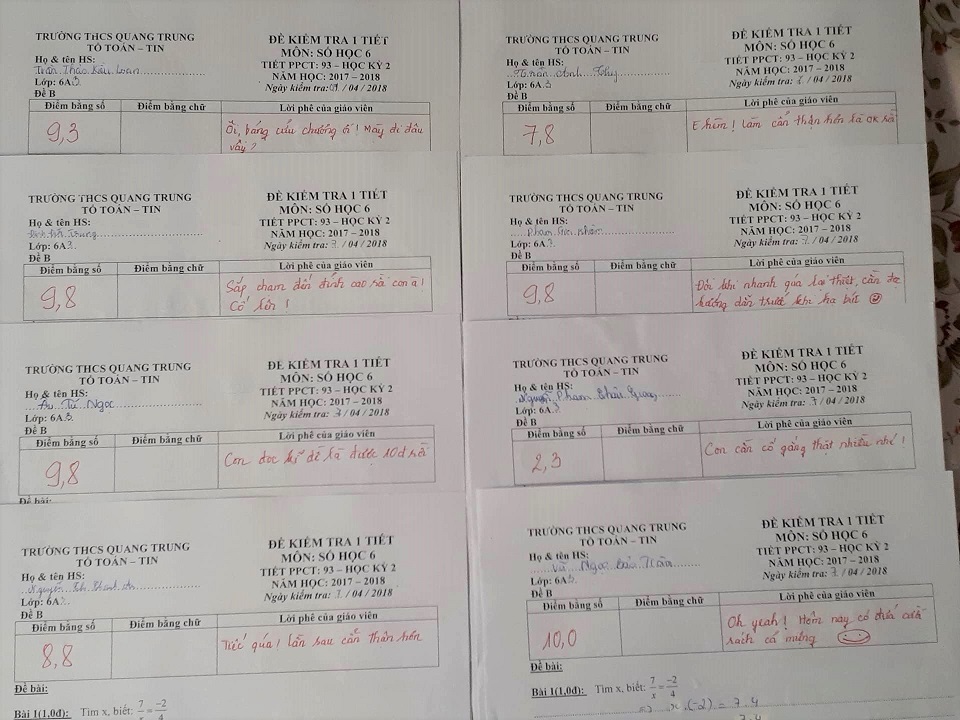 TRƯỜNG THCS QUANG TRUNG
TỔ TOÁN – TIN
Họ & tên HS:
Trần Thảo Kiều Loan
Lớp: 6A3
Đề B
ĐỀ KIỂM TRA 1 TIẾT
MÔN: SỐ HỌC 6
TIẾT PPCT: 93 – HỌC KỲ 2
NĂM HỌC: 2017 – 2018
Ngày kiểm tra: / 04 / 2018
Điểm bằng số Điểm bằng chữ Lời phê của giáo viên
9,3
Ôi, bảng cửu chương ơi! Mày đi đâu
vậy?
TRƯỜNG THCS QUANG TRUNG
TỔ TOÁN – TIN
Họ & tên HS:
Anh Thy
Lớp: 6A3
Đề B
ĐỀ KIỂM TRA 1 TIẾT
MÔN: SỐ HỌC 6
TIẾT PPCT: 93 – HỌC KỲ 2
NĂM HỌC: 2017 – 2018
Ngày kiểm tra: 7 / 04 / 2018
Điểm bằng số Điểm bằng chữ Lời phê của giáo viên
7,8
E hèm! Làm cẩn thận hơn là ok rồi
TRƯỜNG THCS QUANG TRUNG
TỔ TOÁN – TIN
Họ & tên HS:
Trung
Lớp: 6A3
Đề B
ĐỀ KIỂM TRA 1 TIẾT
MÔN: SỐ HỌC 6
TIẾT PPCT: 93 – HỌC KỲ 2
NĂM HỌC: 2017 – 2018
Ngày kiểm tra: 7 / 04 / 2018
Điểm bằng số Điểm bằng chữ Lời phê của giáo viên
9,8
Sắp chạm đến đỉnh cao rồi con ạ!
Cố lên!
TRƯỜNG THCS QUANG TRUNG
TỔ TOÁN – TIN
Họ & tên HS:
Phạm
Lớp: 6A3
Đề B
ĐỀ KIỂM TRA 1 TIẾT
MÔN: SỐ HỌC 6
TIẾT PPCT: 93 – HỌC KỲ 2
NĂM HỌC: 2017 – 2018
Ngày kiểm tra: 7 / 04 / 2018
Điểm bằng số Điểm bằng chữ Lời phê của giáo viên
9,8
Đôi khi nhanh quá lại thiệt, cần đọc
hướng dẫn trước khi hạ bút
TRƯỜNG THCS QUANG TRUNG
TỔ TOÁN – TIN
Họ & tên HS:
Âu Tú Ngọc
Lớp: 6A3
Đề B
ĐỀ KIỂM TRA 1 TIẾT
MÔN: SỐ HỌC 6
TIẾT PPCT: 93 – HỌC KỲ 2
NĂM HỌC: 2017 – 2018
Ngày kiểm tra: 7 / 04 / 2018
Điểm bằng số Điểm bằng chữ Lời phê của giáo viên
9,8
Con đọc kĩ đề là được 10đ rồi
Đề bài:
TRƯỜNG THCS QUANG TRUNG
TỔ TOÁN – TIN
Họ & tên HS:
Nguyễn Phạm Châu Giang
Lớp: 6A3
Đề B
ĐỀ KIỂM TRA 1 TIẾT
MÔN: SỐ HỌC 6
TIẾT PPCT: 93 – HỌC KỲ 2
NĂM HỌC: 2017 – 2018
Ngày kiểm tra: 7 / 04 / 2018
Điểm bằng số Điểm bằng chữ Lời phê của giáo viên
2,3
Con cần cố gắng thật nhiều nhé!
TRƯỜNG THCS QUANG TRUNG
TỔ TOÁN – TIN
Họ & tên HS:
Nguyễn
Lớp: 6A3
Đề B
ĐỀ KIỂM TRA 1 TIẾT
MÔN: SỐ HỌC 6
TIẾT PPCT: 93 – HỌC KỲ 2
NĂM HỌC: 2017 – 2018
Ngày kiểm tra: 7 / 04 / 2018
Điểm bằng số Điểm bằng chữ Lời phê của giáo viên
8,8
Tiếc quá! lần sau cẩn thận hơn
Đề bài:
Bài 1(1,0đ): Tìm x, biết: 7/x = -2/4
TRƯỜNG THCS QUANG TRUNG
TỔ TOÁN – TIN
Họ & tên HS:
Vũ Ngọc Bảo Trân
Lớp: 6A3
Đề B
ĐỀ KIỂM TRA 1 TIẾT
MÔN: SỐ HỌC 6
TIẾT PPCT: 93 – HỌC KỲ 2
NĂM HỌC: 2017 – 2018
Ngày kiểm tra: 7 / 04 / 2018
Điểm bằng số Điểm bằng chữ Lời phê của giáo viên
10,0
Oh yeah! Hôm nay có đứa cười
rách cả miệng
Đề bài:
Bài 1(1,0đ): Tìm x, biết: 7/x = -2/4
x.(-2) = 7.4
7.4